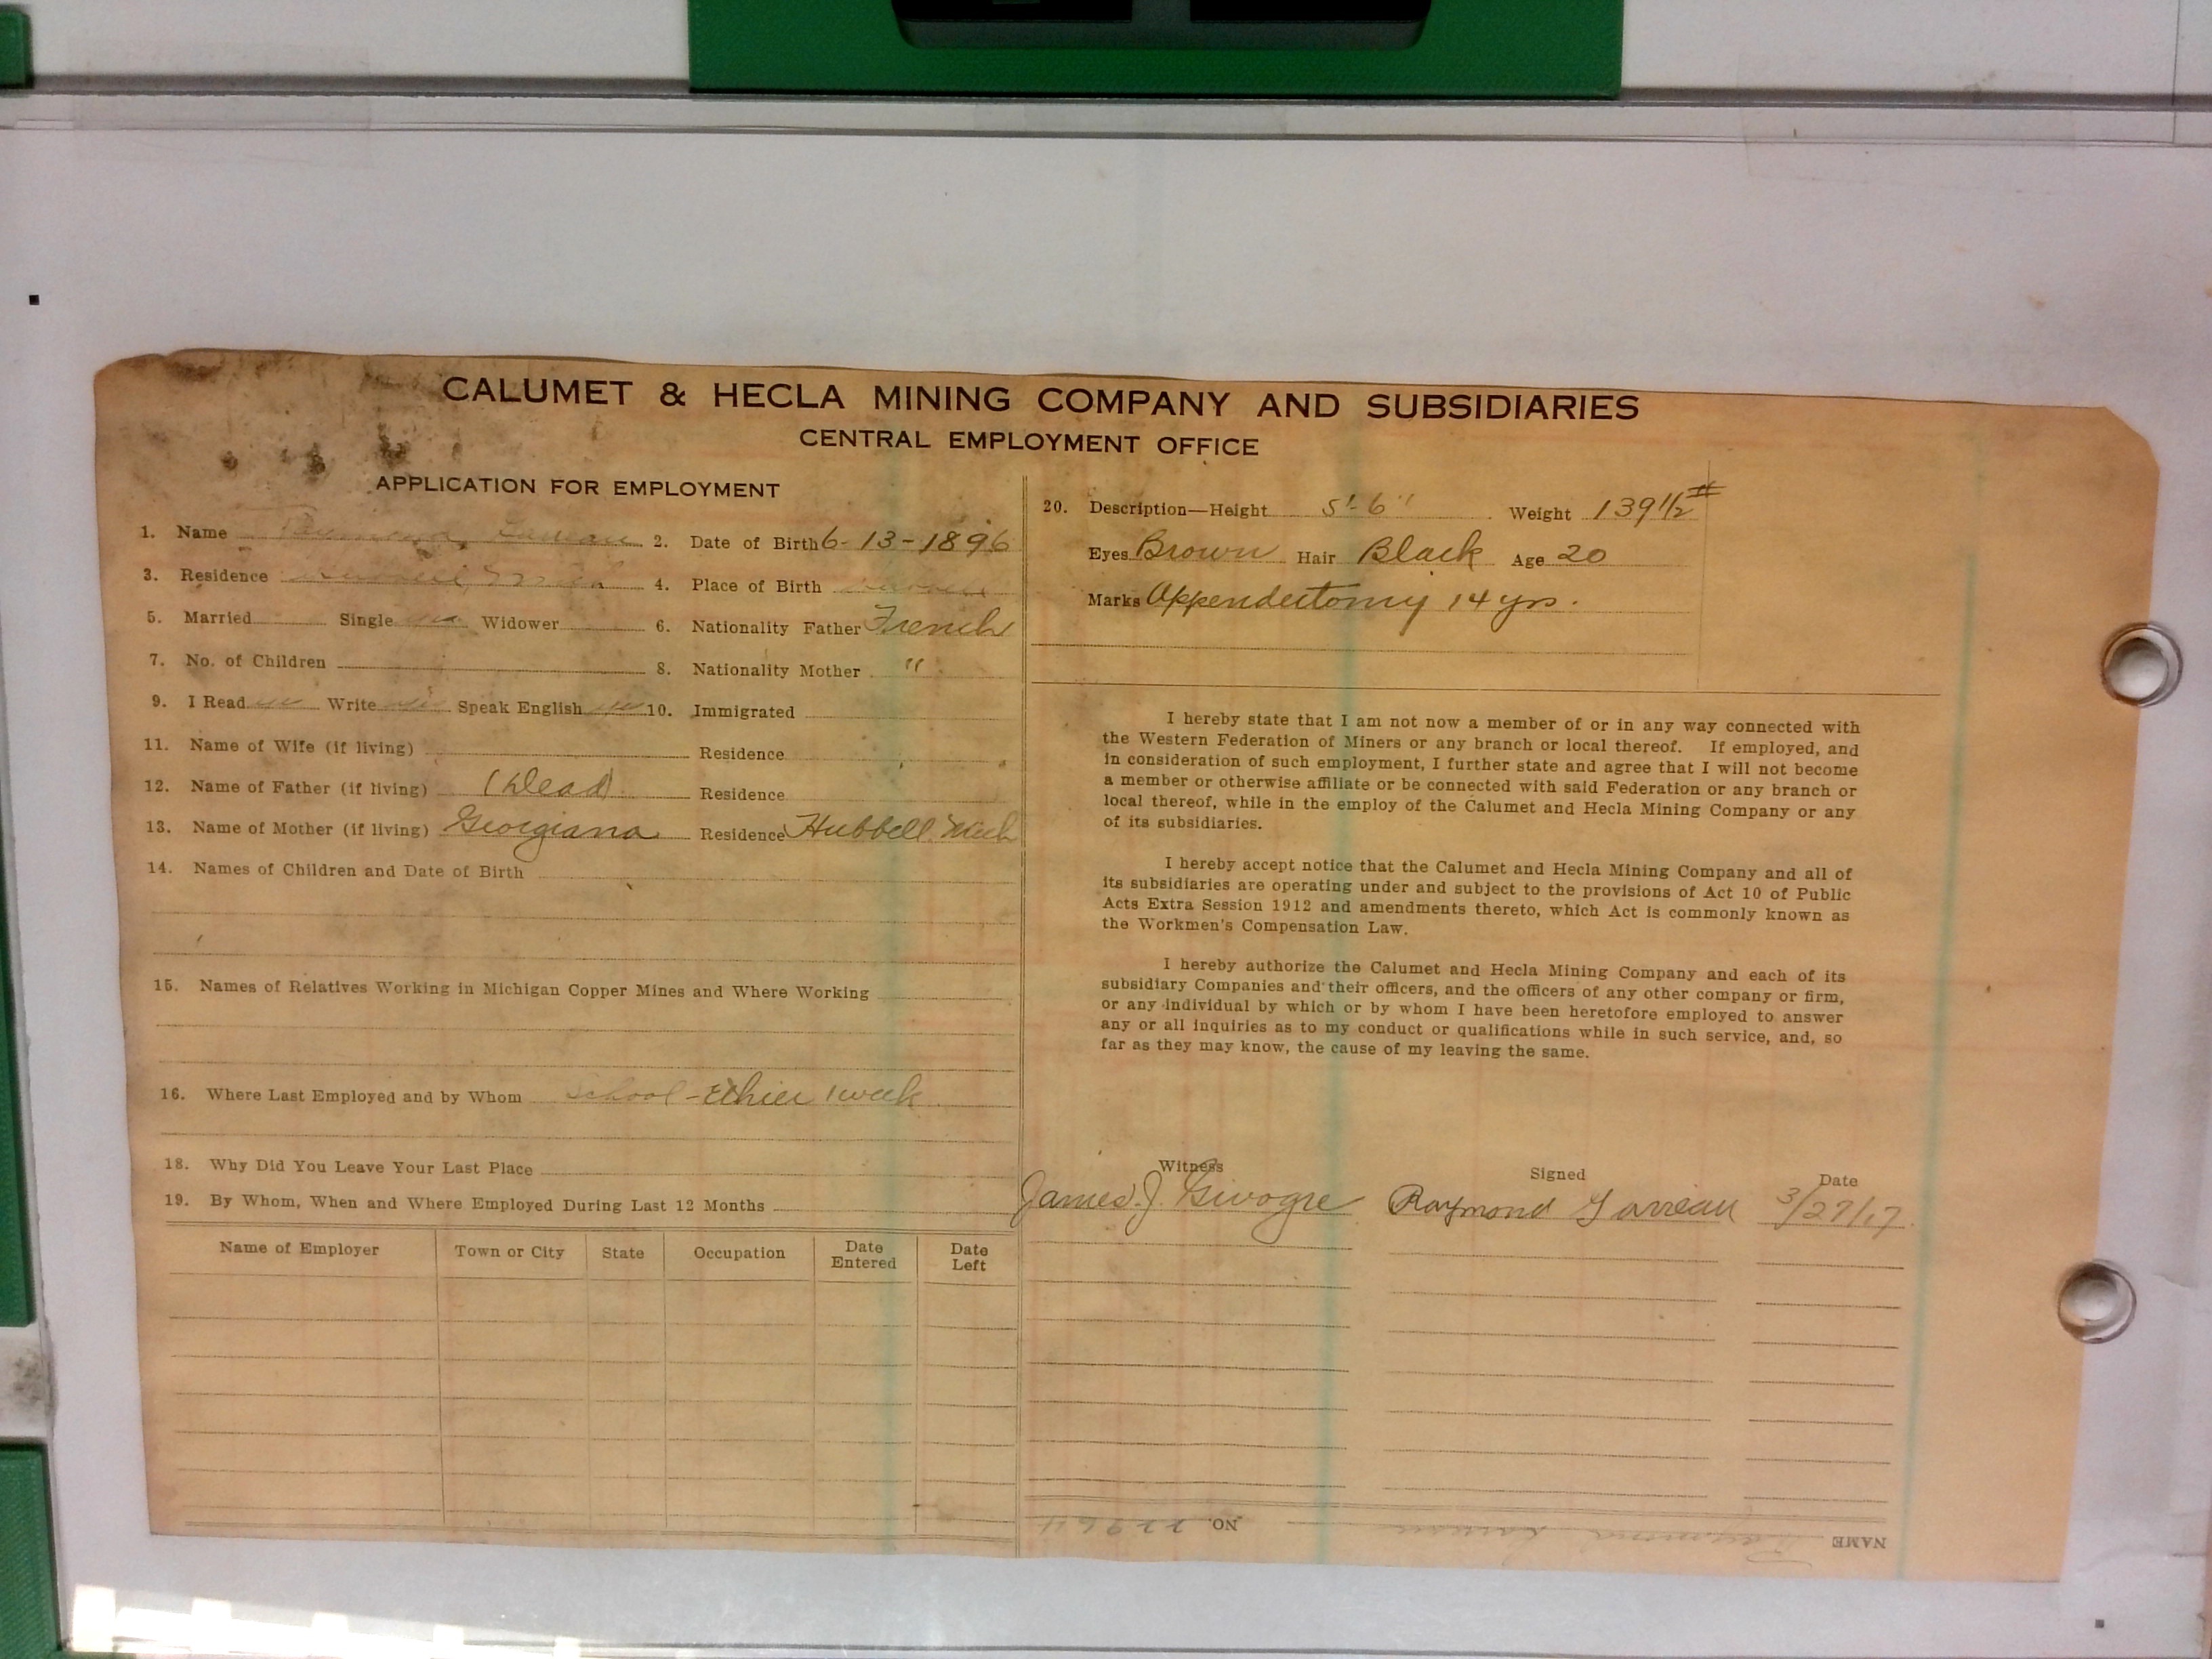 CALUMET & HECLA MINING COMPANY AND SUBSIDIARIES
CENTRAL EMPLOYMENT OFFICE
APPLICATION FOR EMPLOYMENT
1. Name Raymond 2. Date of Birth 6-13-1896
3. Residence Mich 4. Place of Birth
5. Married Single Widower 6. Nationality Father French
7. No. of Children 8. Nationality Mother "
9. I Read Write Speak English 10. Immigrated
11. Name of Wife (if living) Residence
12. Name of Father (if living) (Dead) Residence
13. Name of Mother (if living) Georgiana Residence Hubbell Mich
14. Names of Children and Date of Birth
15. Names of Relatives Working in Michigan Copper Mines and Where Working
16. Where Last Employed and by Whom School - 1 week
18. Why Did You Leave Your Last Place
19. By Whom, When and Where Employed During Last 12 Months
Name of Employer Town or City State Occupation Date Entered Date Left
20. Description—Height 5'-6" Weight 139 1/2 #
Eyes Brown Hair Black Age 20
Marks Appendectomy 14 yrs.
I hereby state that I am not now a member of or in any way connected with
the Western Federation of Miners or any branch or local thereof. If employed, and
in consideration of such employment, I further state and agree that I will not become
a member or otherwise affiliate or be connected with said Federation or any branch or
local thereof, while in the employ of the Calumet and Hecla Mining Company or any
of its subsidiaries.
I hereby accept notice that the Calumet and Hecla Mining Company and all of
its subsidiaries are operating under and subject to the provisions of Act 10 of Public
Acts Extra Session 1912 and amendments thereto, which Act is commonly known as
the Workmen's Compensation Law.
I hereby authorize the Calumet and Hecla Mining Company and each of its
subsidiary Companies and their officers, and the officers of any other company or firm,
or any individual by which or by whom I have been heretofore employed to answer
any or all inquiries as to my conduct or qualifications while in such service, and, so
far as they may know, the cause of my leaving the same.
Witness Signed Date
James J. Raymond Garreau 3/27/17
NAME Raymond NO.